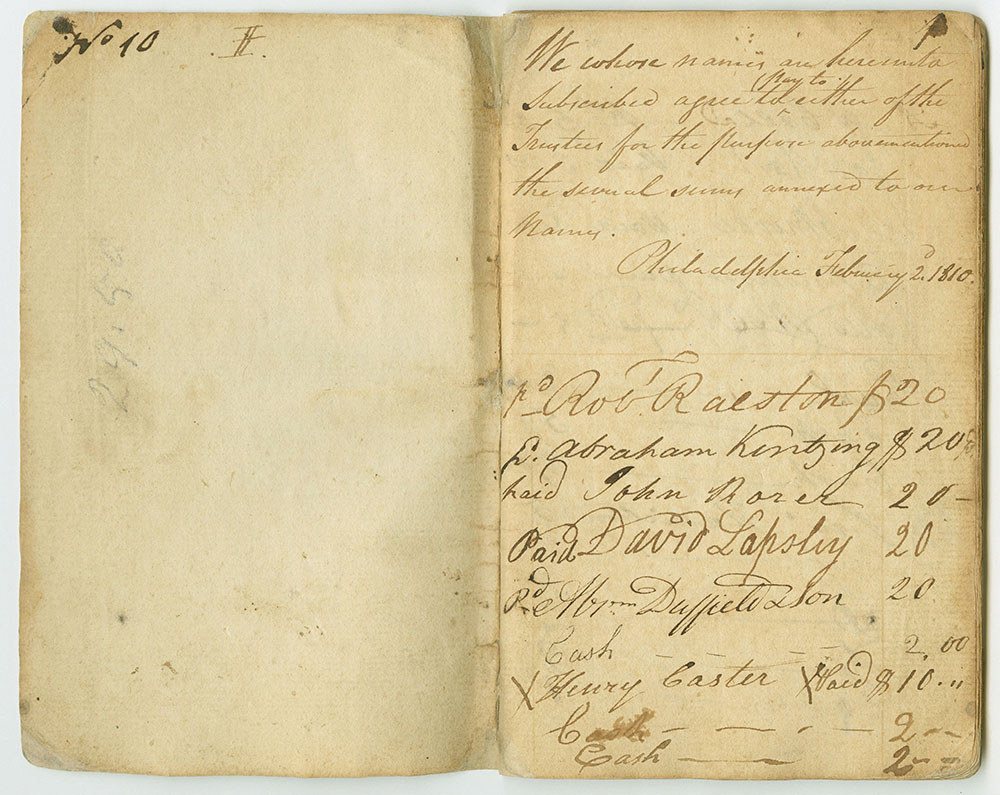 No 10 II.
We whose names are hereunto
(Pay to)
Subscribed agree to either of the
Trustees for the purpose abovementioned
the several sums annexed to our
Names.
Philadelphia February 2d. 1810.
pd Robt Ralston $20
p. Abraham Kintzing $20
paid John Rorer 20-
Paid David Lapsley 20
Pd Abrm Duffield & Son 20
Cash - - - - 2.00
X Henry Caster X Paid $10.,,
Cash - - - - 2--
Cash - - 2--